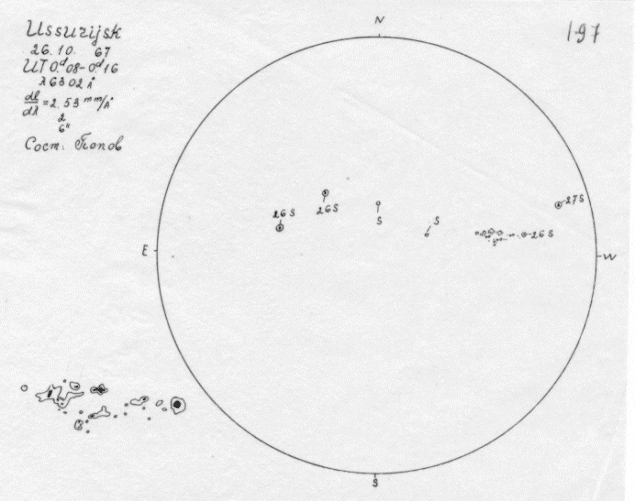 Ussurijsk
197
26.10. 67
UT 0.ᵈ08-0.ᵈ16
λ6302 Å
dl/dλ = 2.53 mm/Å
2
6"
Сост. Попов
N
27S
26S
26S
S
S
26S
E
W
S